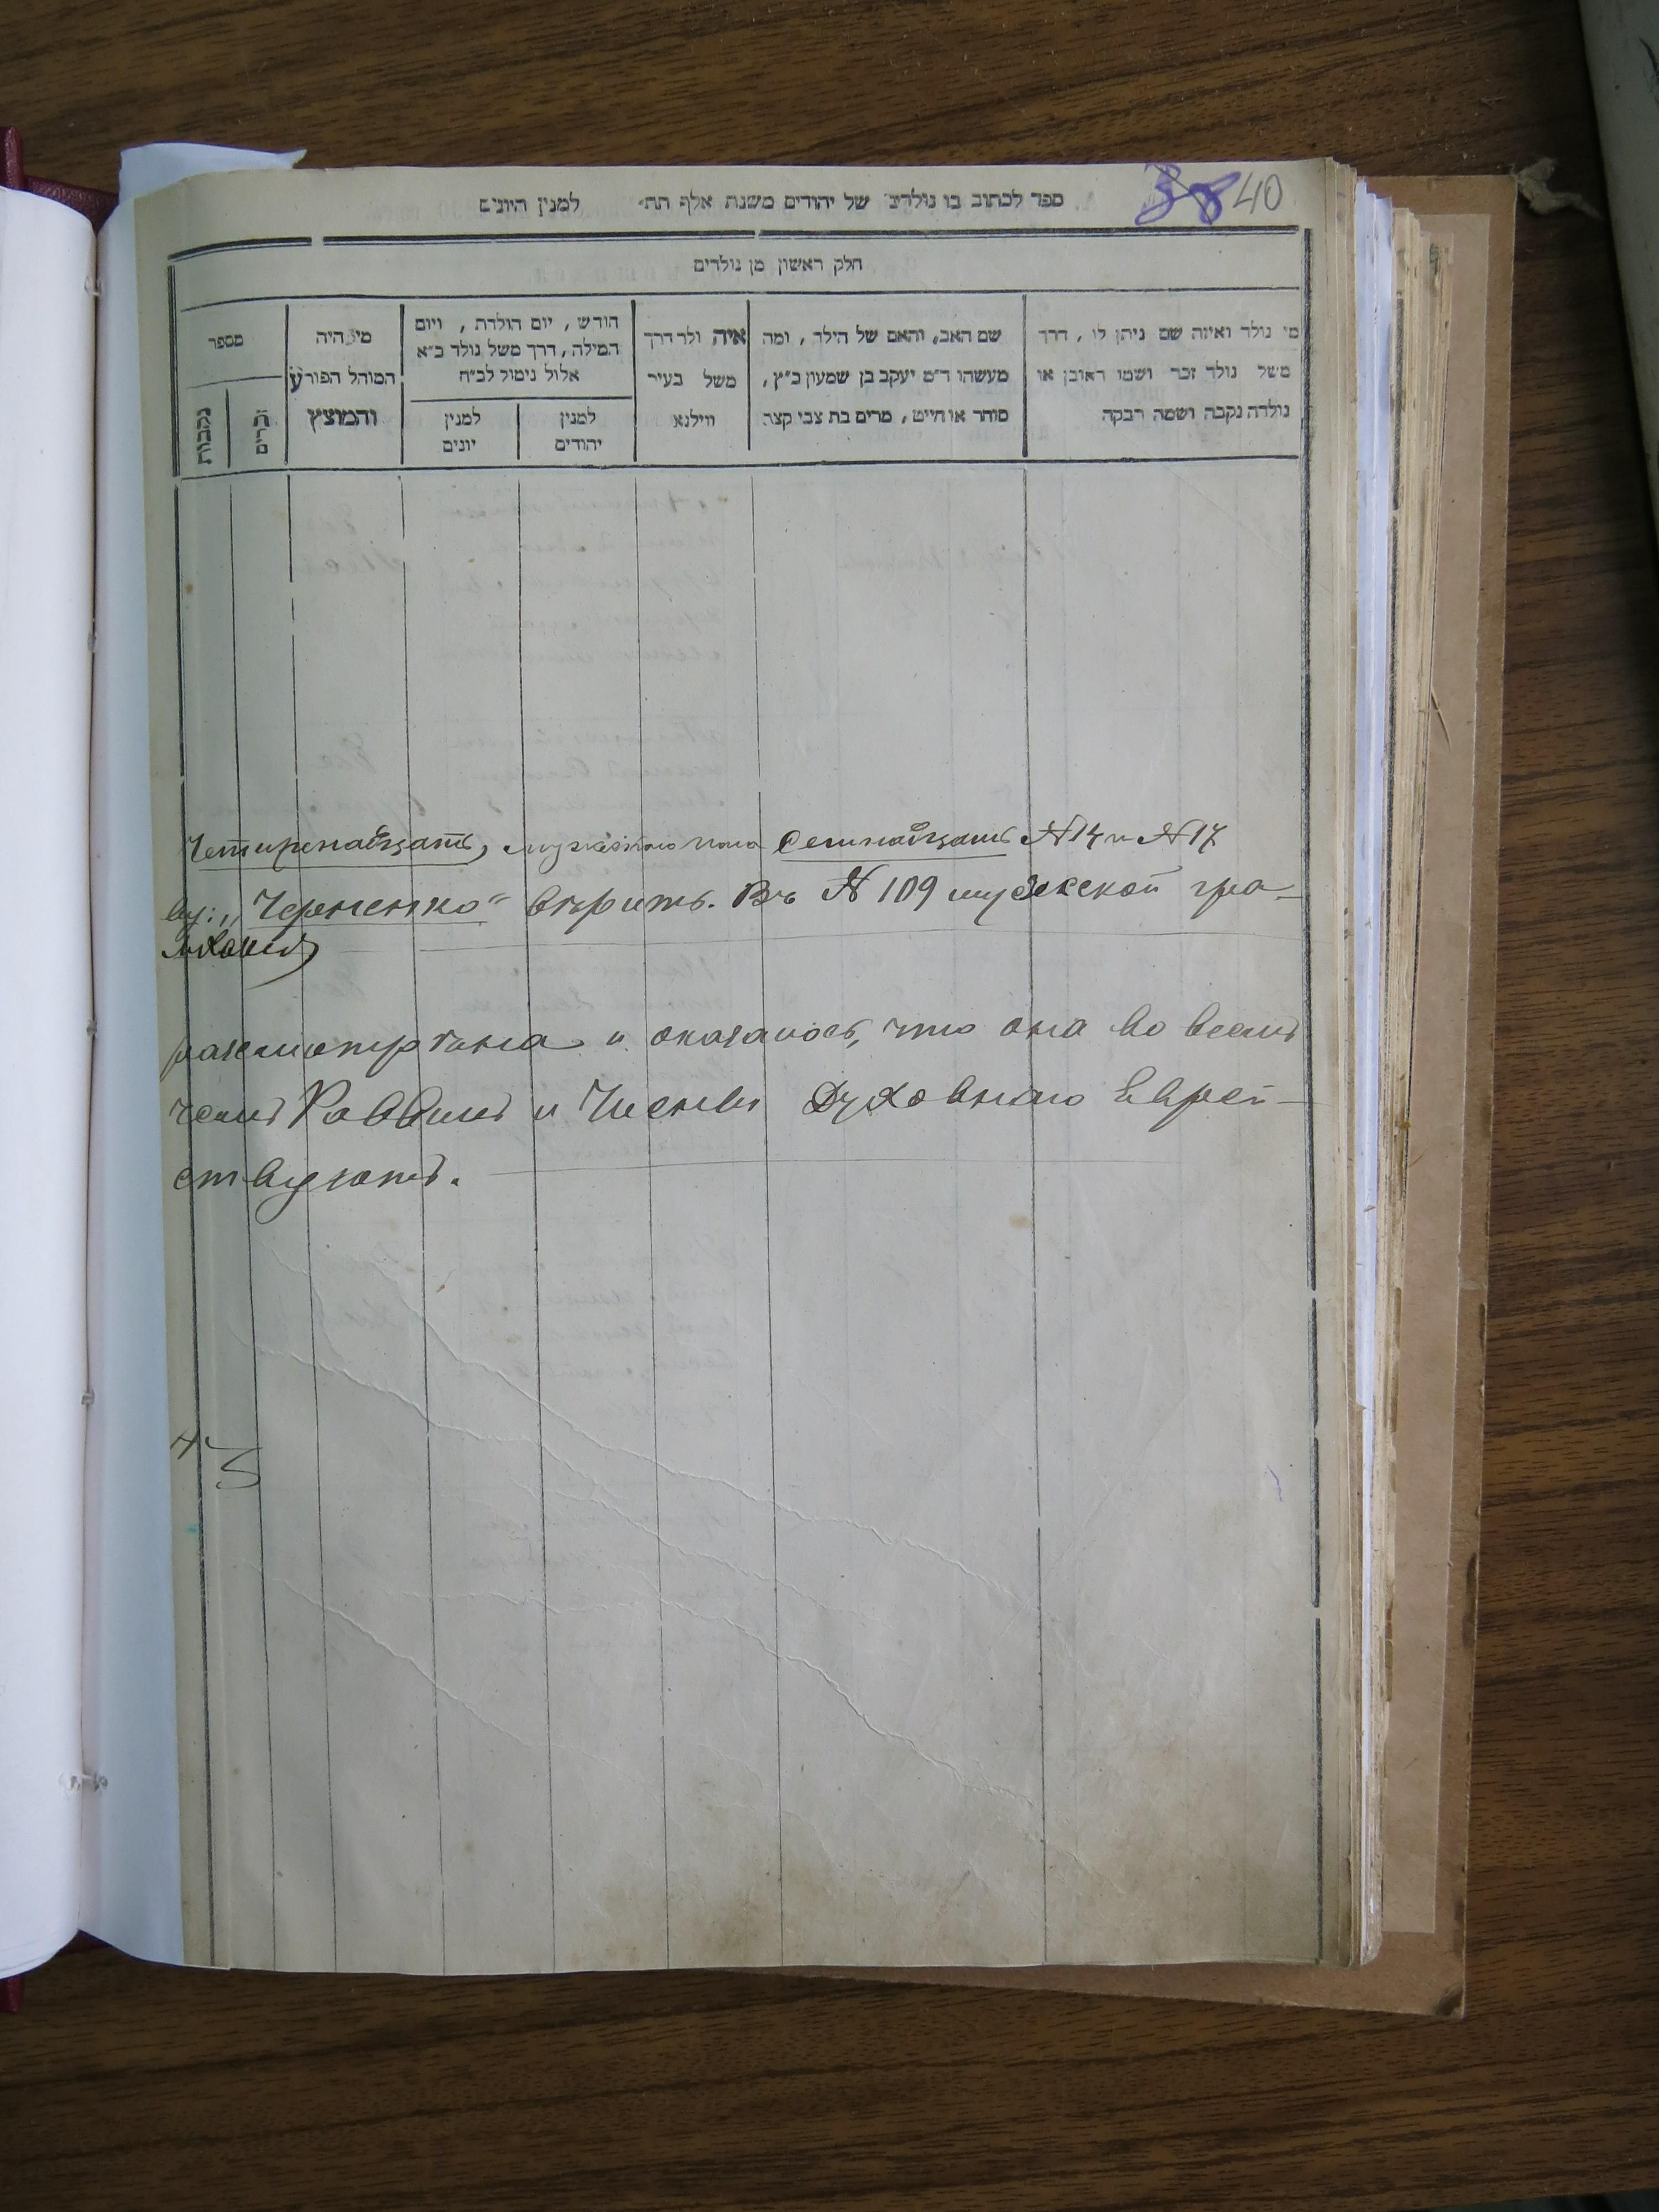 38 40
ספר לכתוב בו נולדים של יהודים משנת אלף תת׳ למנין היונים
חלק ראשון מן נולדים
מי נולד ואיזה שם ניתן לו, דרך
משל נולד זכר ושמו ראובן או
נולדה נקבה ושמה רבקה
שם האב, והאם של הילד, ומה
מעשהו ד״מ יעקב בן שמעון כ״ץ,
סוחר או חייט, מרים בת צבי קצב
איה ולד דרך
משל בעיר
ווילנא
חודש, יום הולדת, ויום
המילה, דרך משל נולד כ״א
אלול נימול לכ״ח
למנין
יהודים
למנין
יונים
מי היה
המוהל הפורע
והמוצץ
מספר
זכרים
נקבות
Четырнадцать, мужескаго пола Семнадцать №14 и №17
"Черненко" верить. Въ №109 мужеской гра-
разсмотрѣна и оказалось, что она во всемъ
чемъ Раввинъ и Члены Духовнаго Еврей-
ствуютъ.